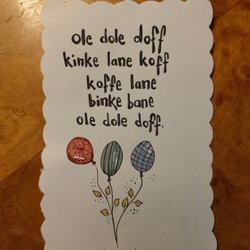 ole dole doff
kinke lane koff
koffe lane
binke bane
ole dole doff.